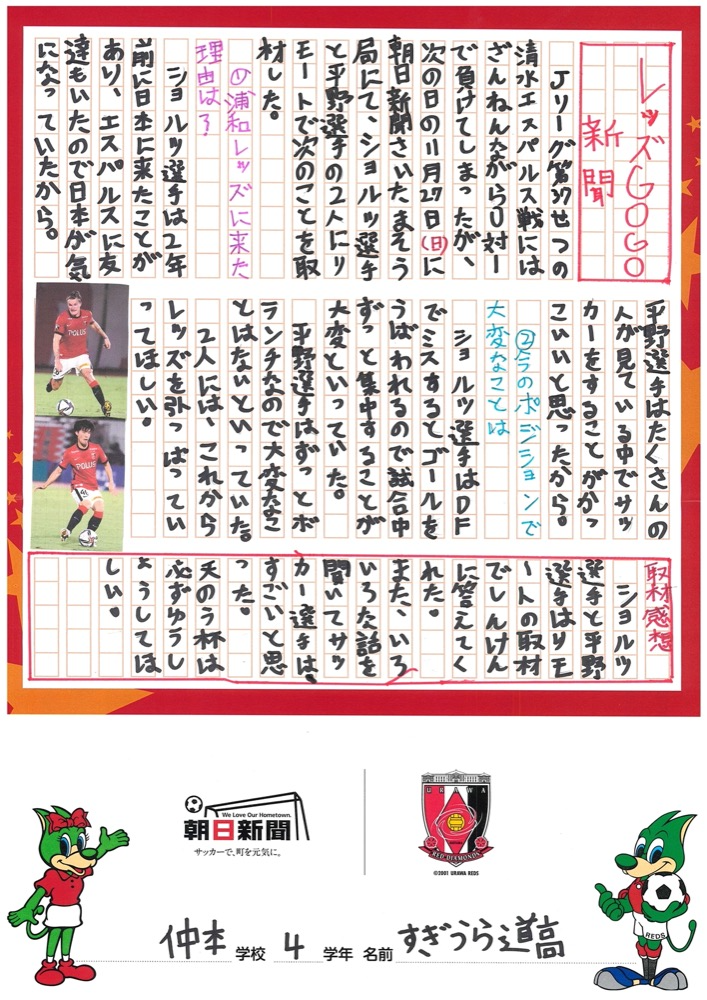 レッズGOGO
新聞
Jリーグ第37せつの
清水エスパルス戦には
ざんねんながら0対1
で負けてしまったが、
次の日の11月27日(日)に
朝日新聞さいたまそう
局にて、ショルツ選手
と平野選手の2人にリ
モートで次のことを取
材した。
①浦和レッズに来た
理由は？
ショルツ選手は2年
前に日本に来たことが
あり、エスパルスに友
達もいたので日本が気
になっていたから。
平野選手はたくさんの
人が見ている中でサッ
カーをすることがかっ
こいいと思ったから。
②今のポジションで
大変なことは
ショルツ選手はDF
でミスするとゴールを
うばわれるので試合中
ずっと集中することが
大変といっていた。
平野選手はずっとボ
ランチなので大変なこ
とはないといっていた。
2人には、これから
レッズを引っぱってい
ってほしい。
取材感想
ショルツ
選手と平野
選手はリモ
ートの取材
でしんけん
に答えてく
れた。
また、いろ
いろな話を
聞いてサッ
カー選手は、
すごいと思
った。
天のう杯は
必ずゆうし
ょうしてほ
しい。
We Love Our Hometown.
朝日新聞
サッカーで、町を元気に。
URAWA
RED DIAMONDS
©2001 URAWA REDS
REDS
仲本 学校 4 学年 名前 すぎうら道高